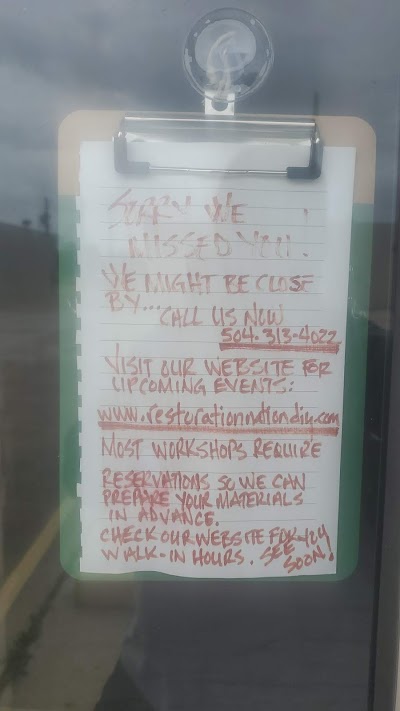 SORRY WE
MISSED YOU.
WE MIGHT BE CLOSE
BY... CALL US NOW
504-313-4022
VISIT OUR WEBSITE FOR
UPCOMING EVENTS:
www.restorationnationdiy.com
MOST WORKSHOPS REQUIRE
RESERVATIONS SO WE CAN
PREPARE YOUR MATERIALS
IN ADVANCE.
CHECK OUR WEBSITE FOR
WALK-IN HOURS. SEE
SOON!